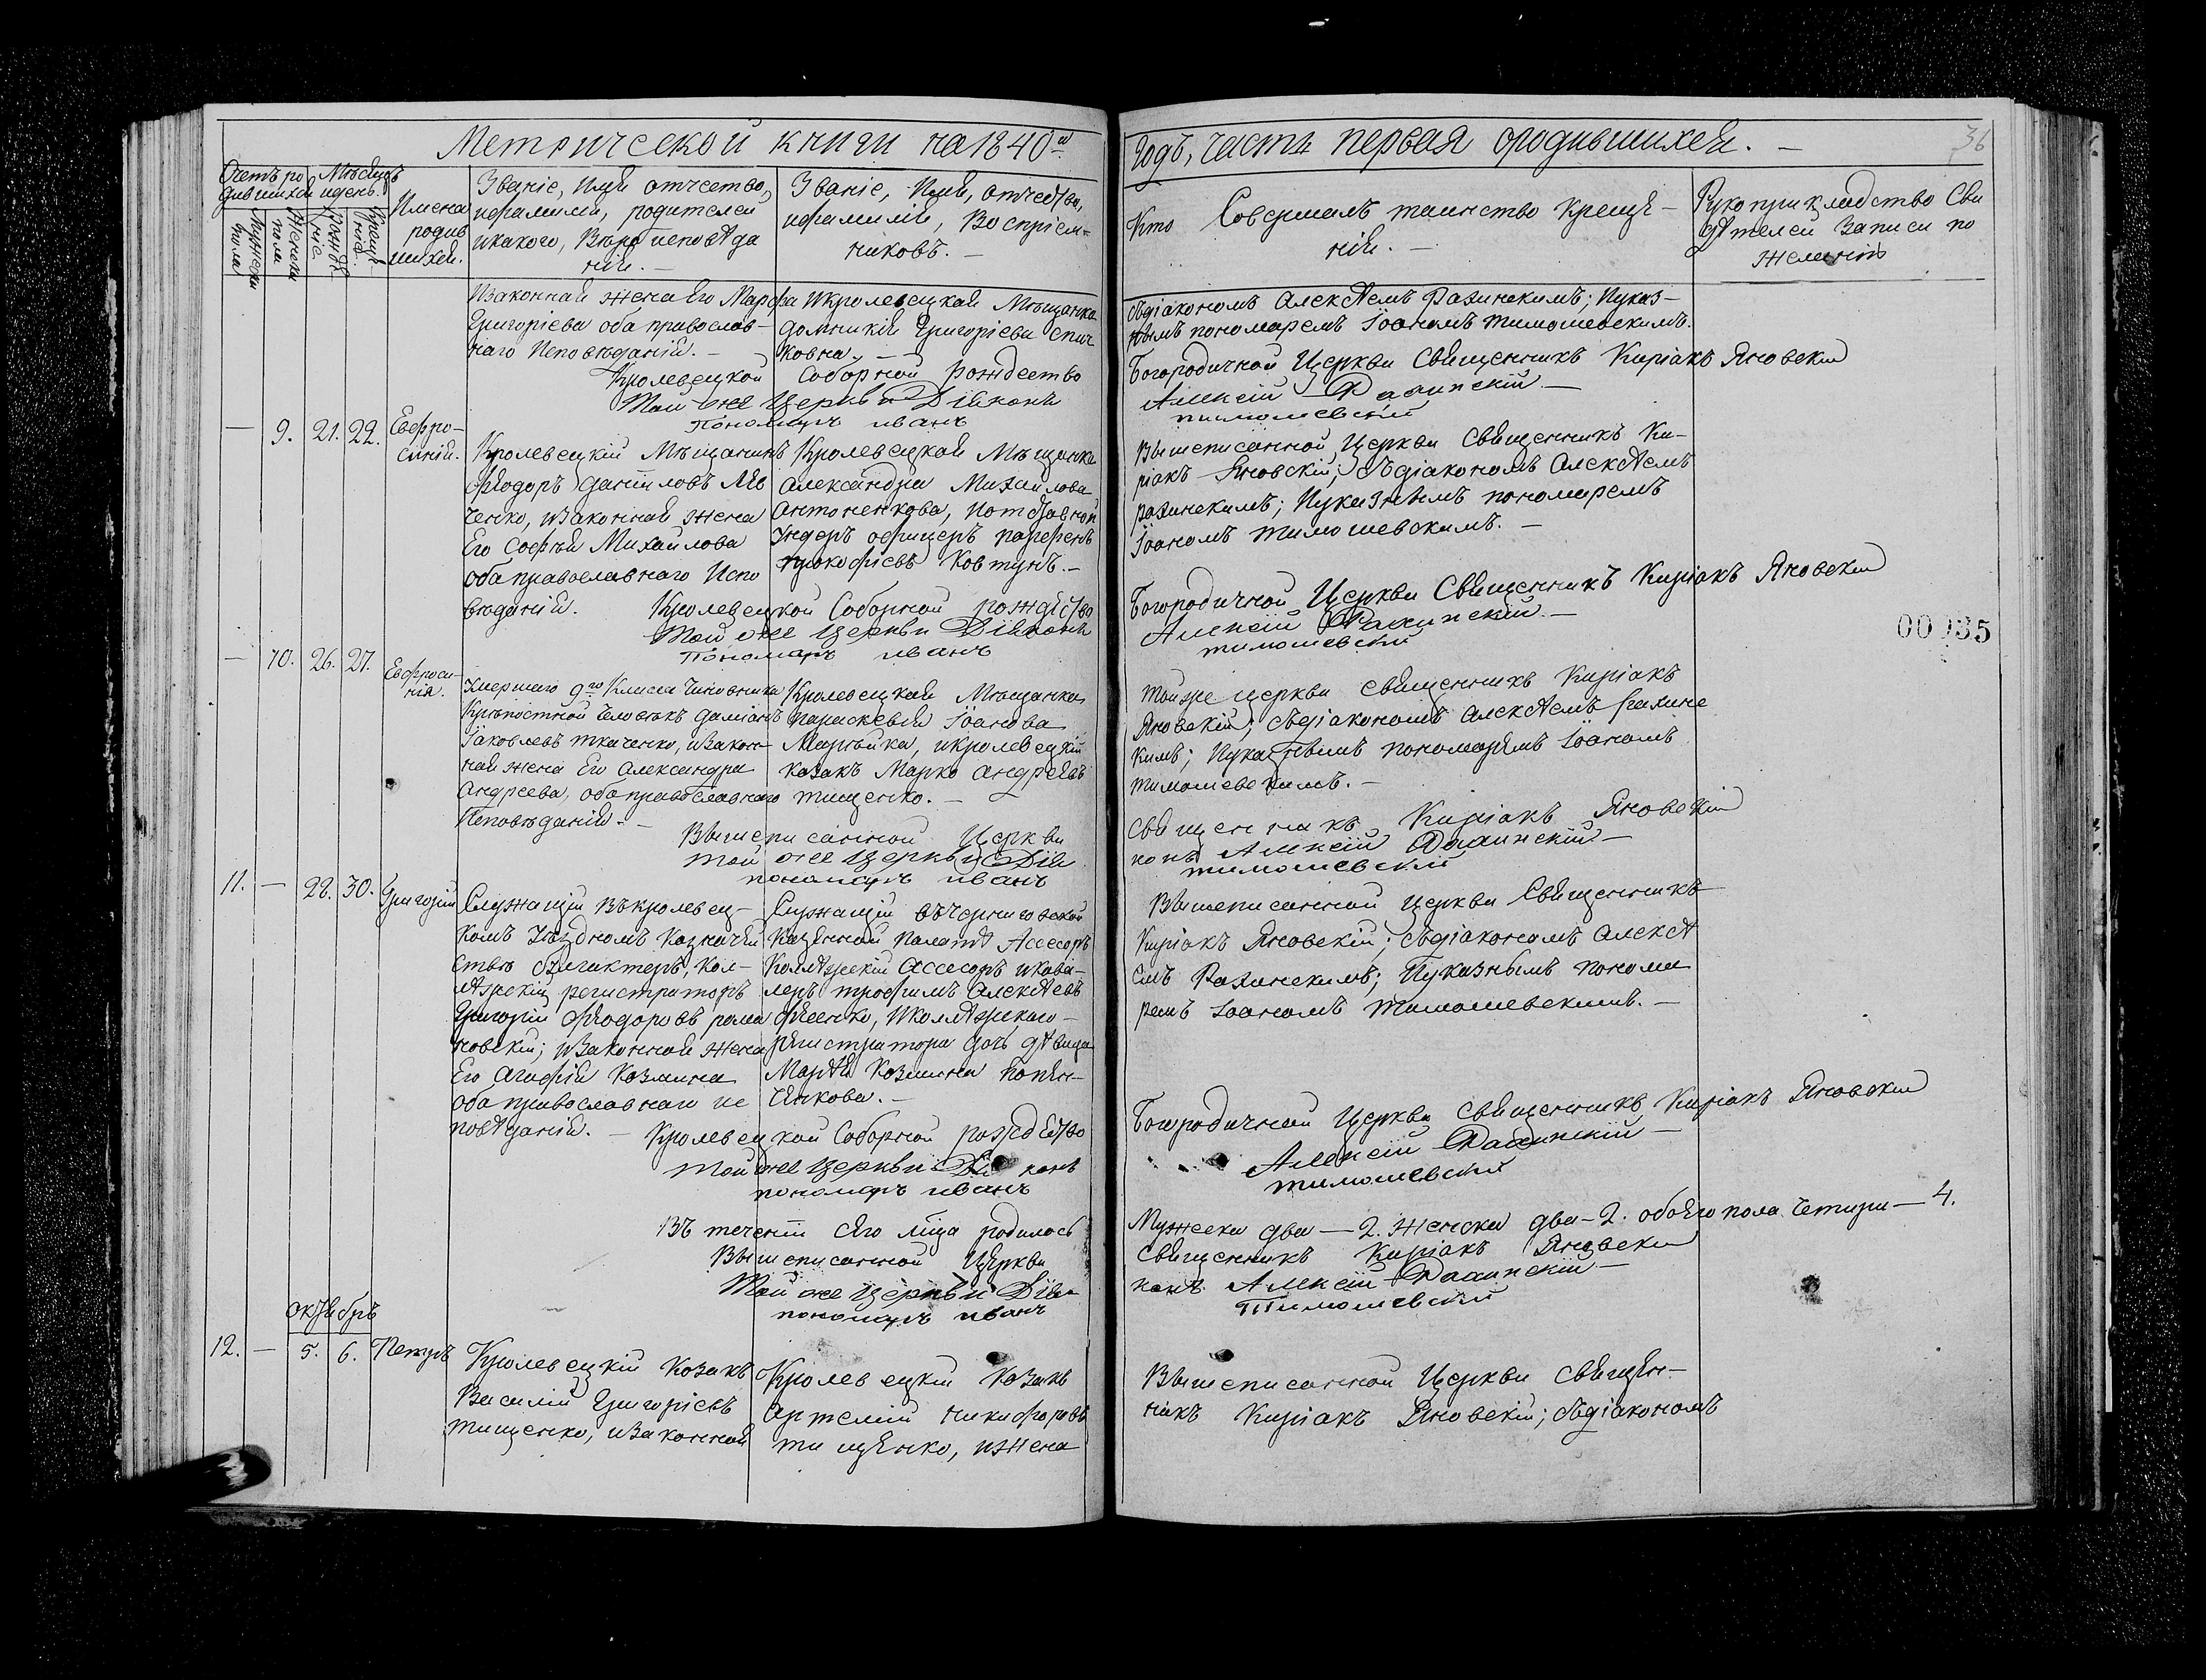 Метрической книги на 1840й
годъ, часть первая ородившихся. —
36
Счетъ родившихся
Мѣсяцъ идень.
Мужеска пола
Женска пола
Рожденіе
Крещеніе
Имена родившихся.
Званіе, Имя отчество,
ифамилія, родителей
икакого, Вѣроисповѣда
нія. —
Званіе, Имя, отчество,
ифамилія, Воспріем-
никовъ. —
Кто Совершалъ таинство Креще-
нія. —
Рукоприкладство Сви
дѣтелей Записи по
желанію
Изаконная жена Его Марфа
Григоріева оба православ-
наго Исповѣданія. —
Икролевецкая Мѣщанка
домникія Григоріева
ковна. —
съдіакономъ Алексѣемъ Рахинскимъ; Иуказ-
нымъ пономаремъ Іоаномъ тимошевскимъ.
Кролевецкой Соборной рождество
Богородичной Церкви Священникъ Киріакъ Яновскій
Той же Церкви Діяконъ
Алексій Рахинскій —
Пономарь иванъ
тимошевскій
— 9. 21. 22. Евфро-
синія.
Кролевецкій Мѣщанинъ
Фіодоръ даніиловъ
ченко, изаконная жена
Его Софія Михайлова
оба православнаго Испо
вѣданія.
Кролевецкая Мѣщанка
Александра Михайлова
Антоненкова, Иотставной
Ундеръ офицеръ парфенъ
прокофіевъ Ковтунъ. —
Вышеписанной Церкви Священникъ Ки-
ріакъ Яновскій; съдіакономъ Алексѣемъ
рахинскимъ; Иуказнымъ пономаремъ
Іоаномъ тимошевскимъ. —
Кролевецкой Соборной рождество
Богородичной Церкви Священникъ Киріакъ Яновскій
Той же Церкви Діяконъ
Алексій Рахинскій —
Пономарь иванъ
тимошевскій
00035
— 10. 26. 27. Евфроси-
нія.
Умершаго 9го Класса Чиновника
Крѣпостной Человѣкъ даміанъ
Іаковлевъ ткаченко, изакон-
ная жена Его Александра
Андреева, оба православнаго
Исповѣданія. —
Кролевецкая Мѣщанка
параскевія Іоанова
икролевецкій
козакъ Марко Андреевъ
тищенко. —
Тойже церкви священникъ Киріакъ
Яновскій; съдіакономъ Алексѣемъ Рахинс
кимъ; Иуказнымъ пономаремъ Іоаномъ
тимошевскимъ. —
Вышеписанной Церкви
священникъ Киріакъ Яновскій
Той же Церкви Дія
конъ Алексій Рахинскій —
пономарь иванъ
тимошевскій
11. — 28. 30. Григорій
Служащій Въкролевец-
комъ Уѣздномъ Казначей
ствѣ Кол-
лѣжскій регистраторъ
Григорій Фіодоровъ рома
новскій; изаконная жена
Его Агафія Козмина
оба православнаго ис
повѣданія. —
Служащій въчерниговской
Казенной Палатѣ Асесоръ
Коллѣжскій Ассесоръ икава-
леръ трофимъ Алексѣевъ
Иколлѣжскаго
регистратора дочь дѣвица
Марѳа Козмина
. —
Вышеписанной церкви Священникъ
Киріакъ Яновскій; съдіакономъ Алексѣ
емъ Рахинскимъ; Иуказнымъ понома
ремъ Іоаномъ тимошевскимъ. —
Кролевецкой Соборной рождество
Богородичной Церкви священникъ Киріакъ Яновскій
Той же Церкви Діяконъ
Алексій Рахинскій —
пономарь иванъ
тимошевскій
Въ теченіи сего мѣсца родилось
Мужеска два — 2. Женска два — 2. обоего пола Четыри — 4.
Вышеписанной Церкви
священникъ Киріакъ Яновскій
Той же Церкви Дія
конъ Алексій Рахинскій —
пономарь иванъ
Тимошевскій
октябрь
12. — 5. 6. Петръ
Кролевецкій Козакъ
Василій Григоріевъ
тищенко, изаконная
Кролевецкій Козакъ
Артемій никифоровъ
тищенко, ижена
Вышеписанной Церкви священ-
никъ Киріакъ Яновскій; съдіакономъ